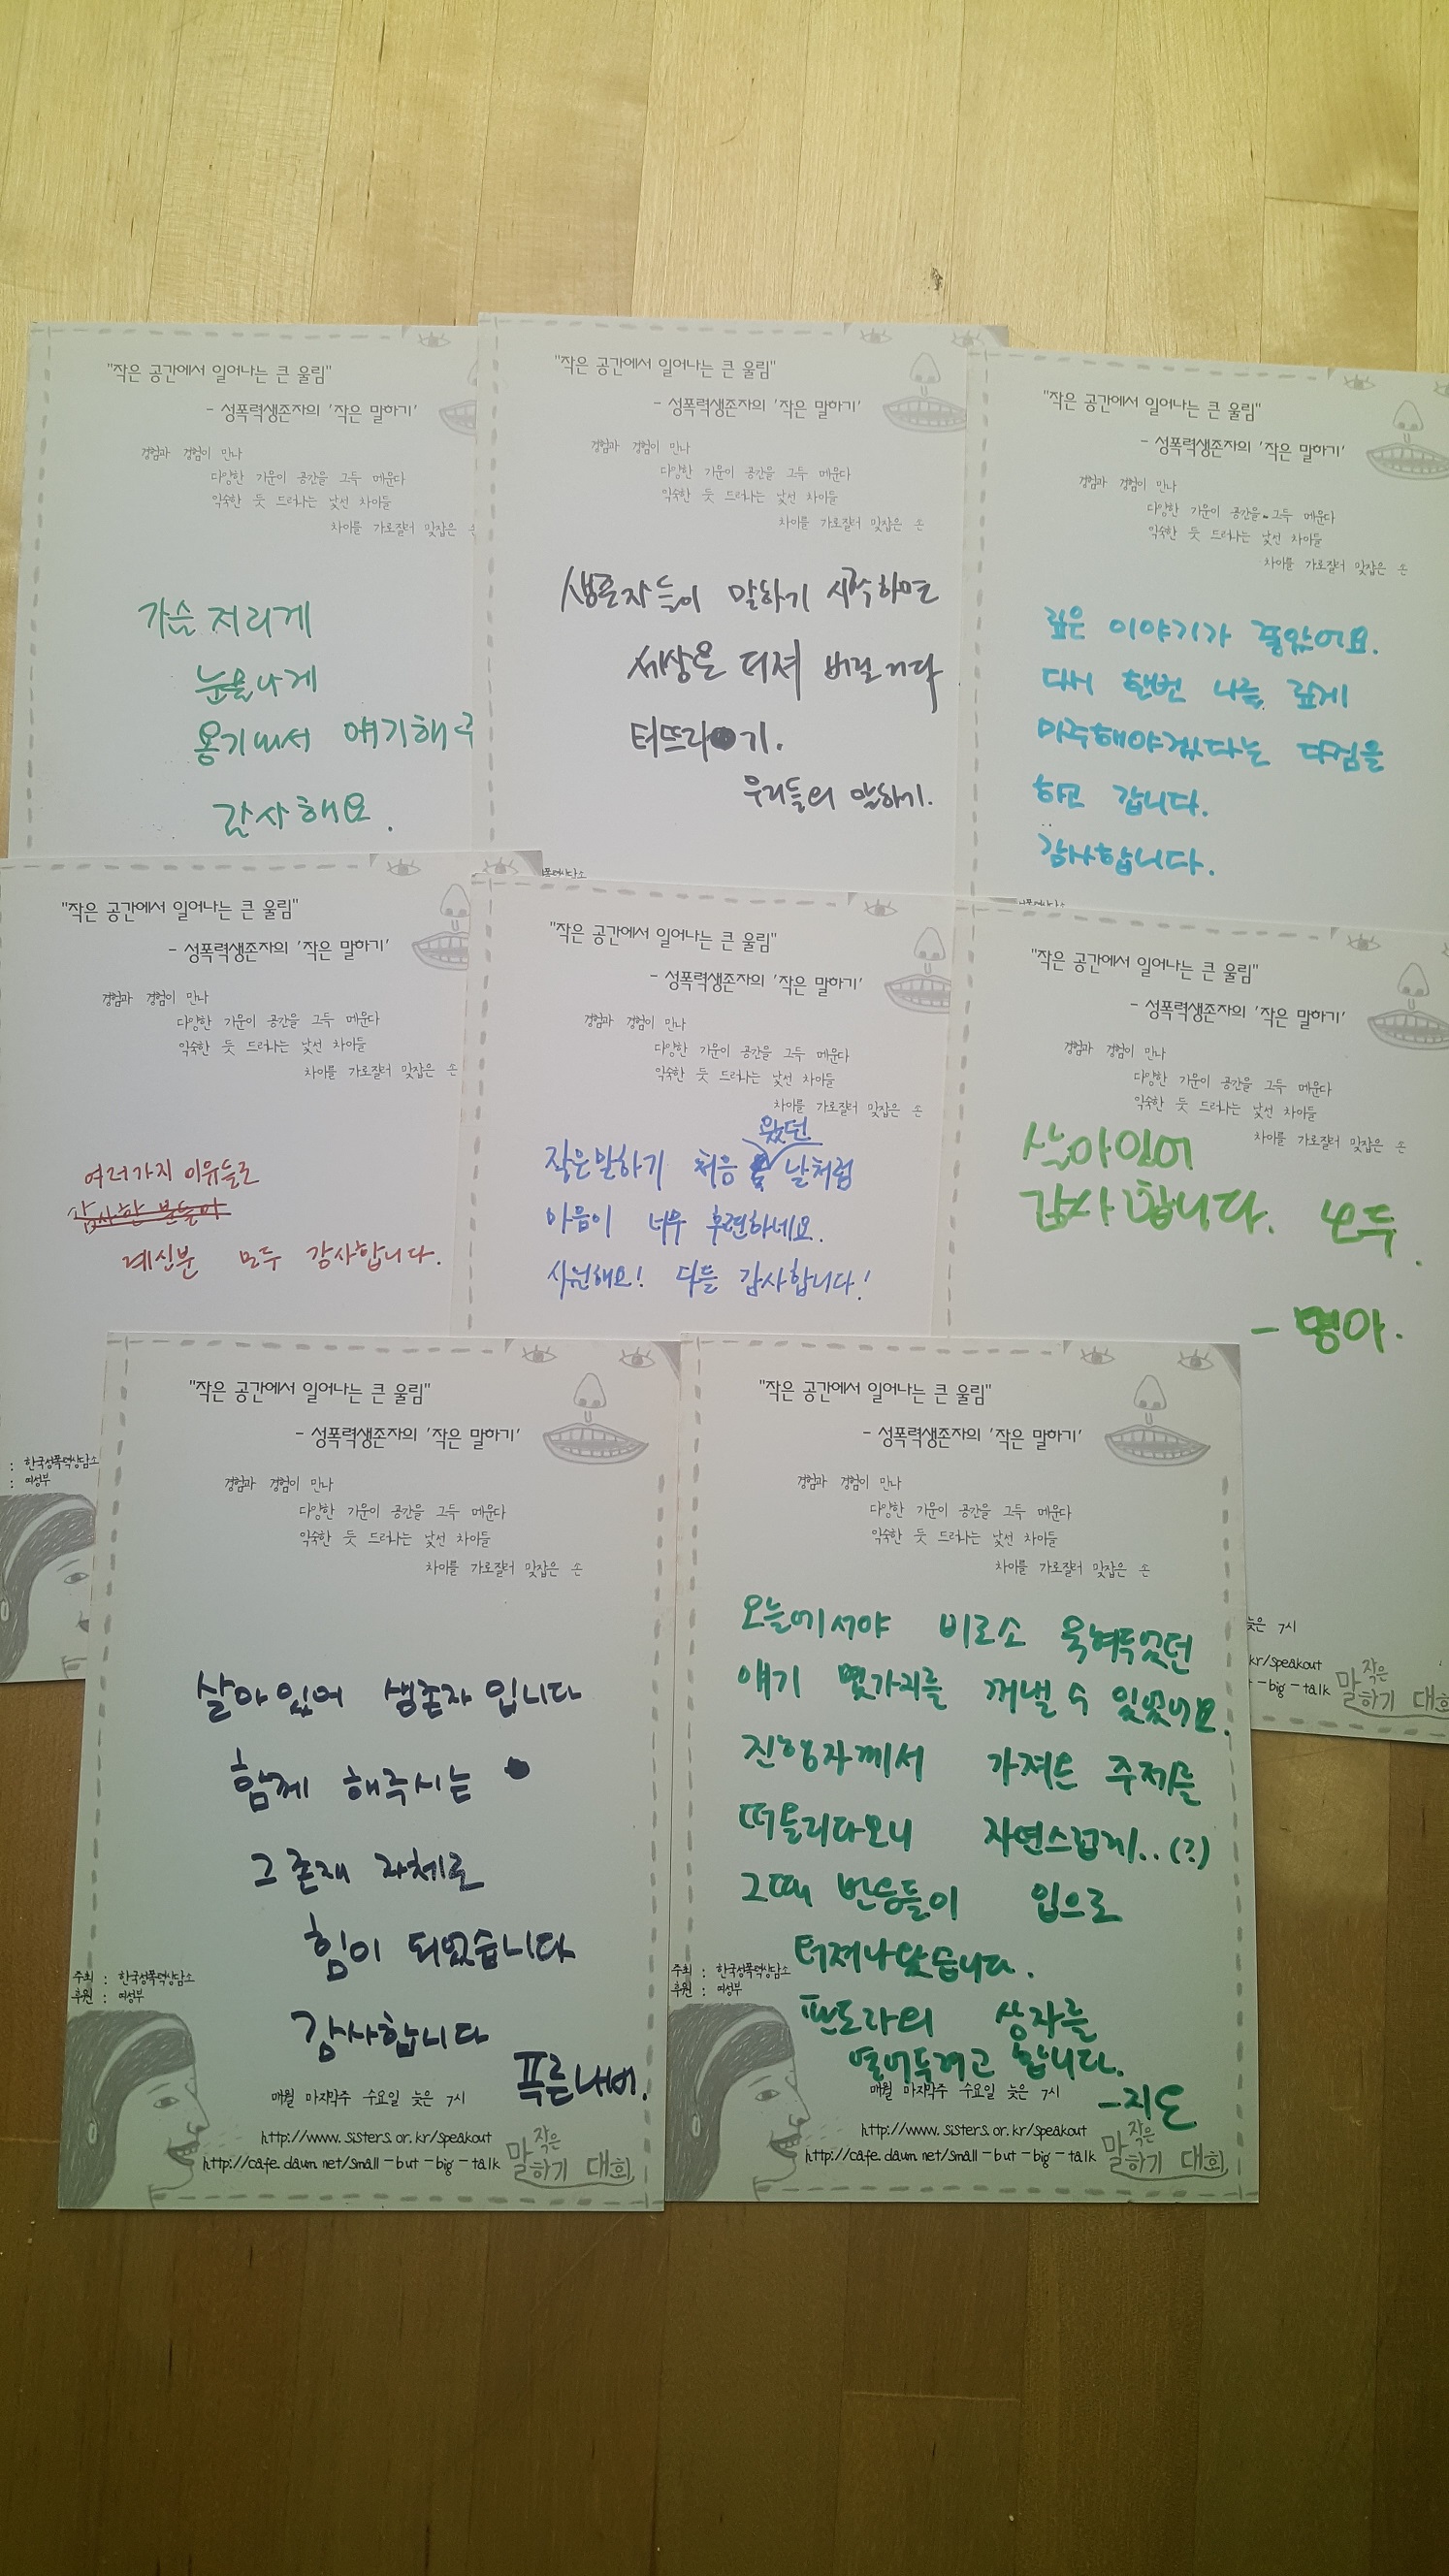 "작은 공간에서 일어나는 큰 울림"
- 성폭력생존자의 '작은 말하기'
경험과 경험이 만나
다양한 기운이 공간을 그득 메운다
익숙한 듯 드러나는 낯선 차이들
차이를 가로질러 맞잡은
가슴 저리게
눈물나게
용기내서 얘기해
감사해요.
"작은 공간에서 일어나는 큰 울림"
- 성폭력생존자의 '작은 말하기'
경험과 경험이 만나
다양한 기운이 공간을 그득 메운다
익숙한 듯 드러나는 낯선 차이들
차이를 가로질러 맞잡은 손
생존자들이 말하기 시작하면
세상은 터져 버릴꺼다
터뜨리기.
우리들의 말하기.
"작은 공간에서 일어나는 큰 울림"
- 성폭력생존자의 '작은 말하기'
경험과 경험이 만나
다양한 기운이 공간을 그득 메운다
익숙한 듯 드러나는 낯선 차이들
차이를 가로질러 맞잡은 손
깊은 이야기가 좋았어요.
다시 한번 나를 깊게
마주해야겠다는 다짐을
하고 갑니다.
감사합니다.
"작은 공간에서 일어나는 큰 울림"
- 성폭력생존자의 '작은 말하기'
경험과 경험이 만나
다양한 기운이 공간을 그득 메운다
익숙한 듯 드러나는 낯선 차이들
차이를 가로질러 맞잡은 손
여러가지 이유들로
계신분 모두 감사합니다.
: 한국성폭력상담소
: 여성부
"작은 공간에서 일어나는 큰 울림"
- 성폭력생존자의 '작은 말하기'
경험과 경험이 만나
다양한 기운이 공간을 그득 메운다
익숙한 듯 드러나는 낯선 차이들
차이를 가로질러 맞잡은 손
작은말하기 처음 왔던 날처럼
마음이 너무 후련하네요.
시원해요! 다들 감사합니다!
"작은 공간에서 일어나는 큰 울림"
- 성폭력생존자의 '작은 말하기'
경험과 경험이 만나
다양한 기운이 공간을 그득 메운다
익숙한 듯 드러나는 낯선 차이들
차이를 가로질러 맞잡은 손
살아있어
감사합니다. 모두.
- 명아.
늦은 7시
kr/speakout
-big-talk
작은
말하기 대회
"작은 공간에서 일어나는 큰 울림"
- 성폭력생존자의 '작은 말하기'
경험과 경험이 만나
다양한 기운이 공간을 그득 메운다
익숙한 듯 드러나는 낯선 차이들
차이를 가로질러 맞잡은 손
살아있어 생존자입니다
함께 해주시는
그 존재 자체로
힘이 되었습니다
감사합니다
푸른나비.
주최 : 한국성폭력상담소
후원 : 여성부
매월 마지막주 수요일 늦은 7시
http://www.sisters.or.kr/speakout
http://cafe.daum.net/small-but-big-talk
작은
말하기 대회
"작은 공간에서 일어나는 큰 울림"
- 성폭력생존자의 '작은 말하기'
경험과 경험이 만나
다양한 기운이 공간을 그득 메운다
익숙한 듯 드러나는 낯선 차이들
차이를 가로질러 맞잡은 손
오늘에서야 비로소 묵혀두었던
얘기 몇가지를 꺼낼 수 있었어요.
진행자께서 가져온 주제를
떠올리다보니 자연스럽게..(?)
그때 반응들이 입으로
터져나왔습니다.
판도라의 상자를
열어두려고 합니다.
-지도
주최 : 한국성폭력상담소
후원 : 여성부
매월 마지막주 수요일 늦은 7시
http://www.sisters.or.kr/speakout
http://cafe.daum.net/small-but-big-talk
작은
말하기 대회